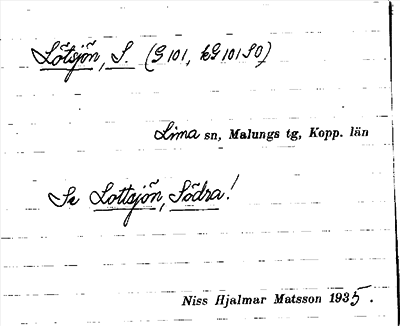 Lötsjön, S. (G 101, kG 101 SO)
Lima sn, Malungs tg, Kopp. län
Se Lottsjön, Södra!
Niss Hjalmar Matsson 1935.